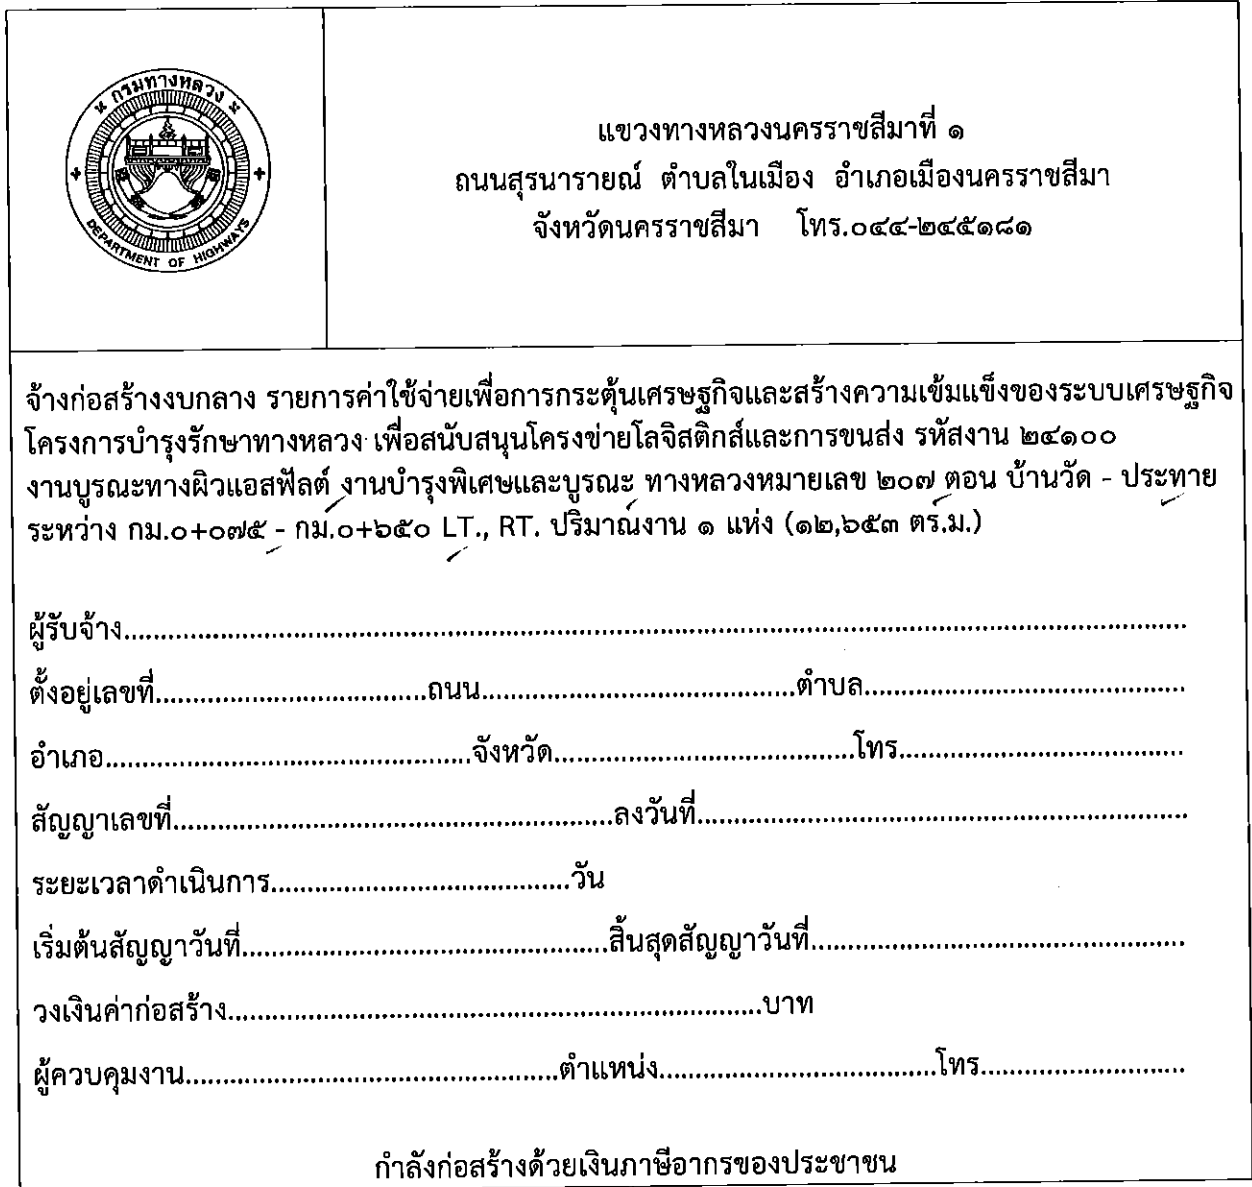 กรมทางหลวง
DEPARTMENT OF HIGHWAYS
แขวงทางหลวงนครราชสีมาที่ ๑
ถนนสุรนารายณ์ ตำบลในเมือง อำเภอเมืองนครราชสีมา
จังหวัดนครราชสีมา โทร.๐๔๔-๒๔๕๑๘๑
จ้างก่อสร้างงบกลาง รายการค่าใช้จ่ายเพื่อการกระตุ้นเศรษฐกิจและสร้างความเข้มแข็งของระบบเศรษฐกิจ
โครงการบำรุงรักษาทางหลวง เพื่อสนับสนุนโครงข่ายโลจิสติกส์และการขนส่ง รหัสงาน ๒๔๑๐๐
งานบูรณะทางผิวแอสฟัลต์ งานบำรุงพิเศษและบูรณะ ทางหลวงหมายเลข ๒๐๗ ตอน บ้านวัด - ประทาย
ระหว่าง กม.๐+๐๗๕ - กม.๐+๖๕๐ LT., RT. ปริมาณงาน ๑ แห่ง (๑๒,๖๕๓ ตร.ม.)
ผู้รับจ้าง....................................................................................................
ตั้งอยู่เลขที่..............................ถนน..............................ตำบล..............................
อำเภอ..............................จังหวัด..............................โทร..............................
สัญญาเลขที่..............................ลงวันที่..............................
ระยะเวลาดำเนินการ..............................วัน
เริ่มต้นสัญญาวันที่..............................สิ้นสุดสัญญาวันที่..............................
วงเงินค่าก่อสร้าง..............................บาท
ผู้ควบคุมงาน..............................ตำแหน่ง..............................โทร..............................
กำลังก่อสร้างด้วยเงินภาษีอากรของประชาชน